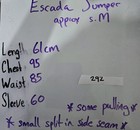 Escada Jumper
approx S.M
Length 61cm
Chest 95
Waist 85
292
Sleeve 60
* some pulling *
* small split in side seam *